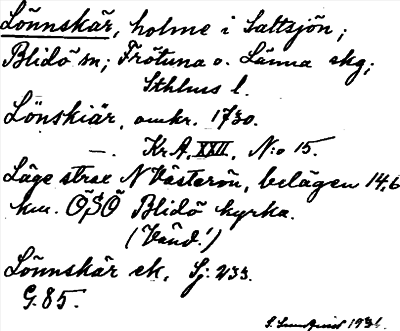 Lönnskär, holme i Saltsjön;
Blidö sn; Frötuna o. Länna skg;
Sthlms l.
Lönskiär, omkr. 1730.
—. Kr.A. XXII, N:o 15.
Läge strax N Västerön, belägen 14,6
km. ÖSÖ Blidö kyrka.
(Vänd!)
Lönnskär ek. Sj: 233.
G. 85.